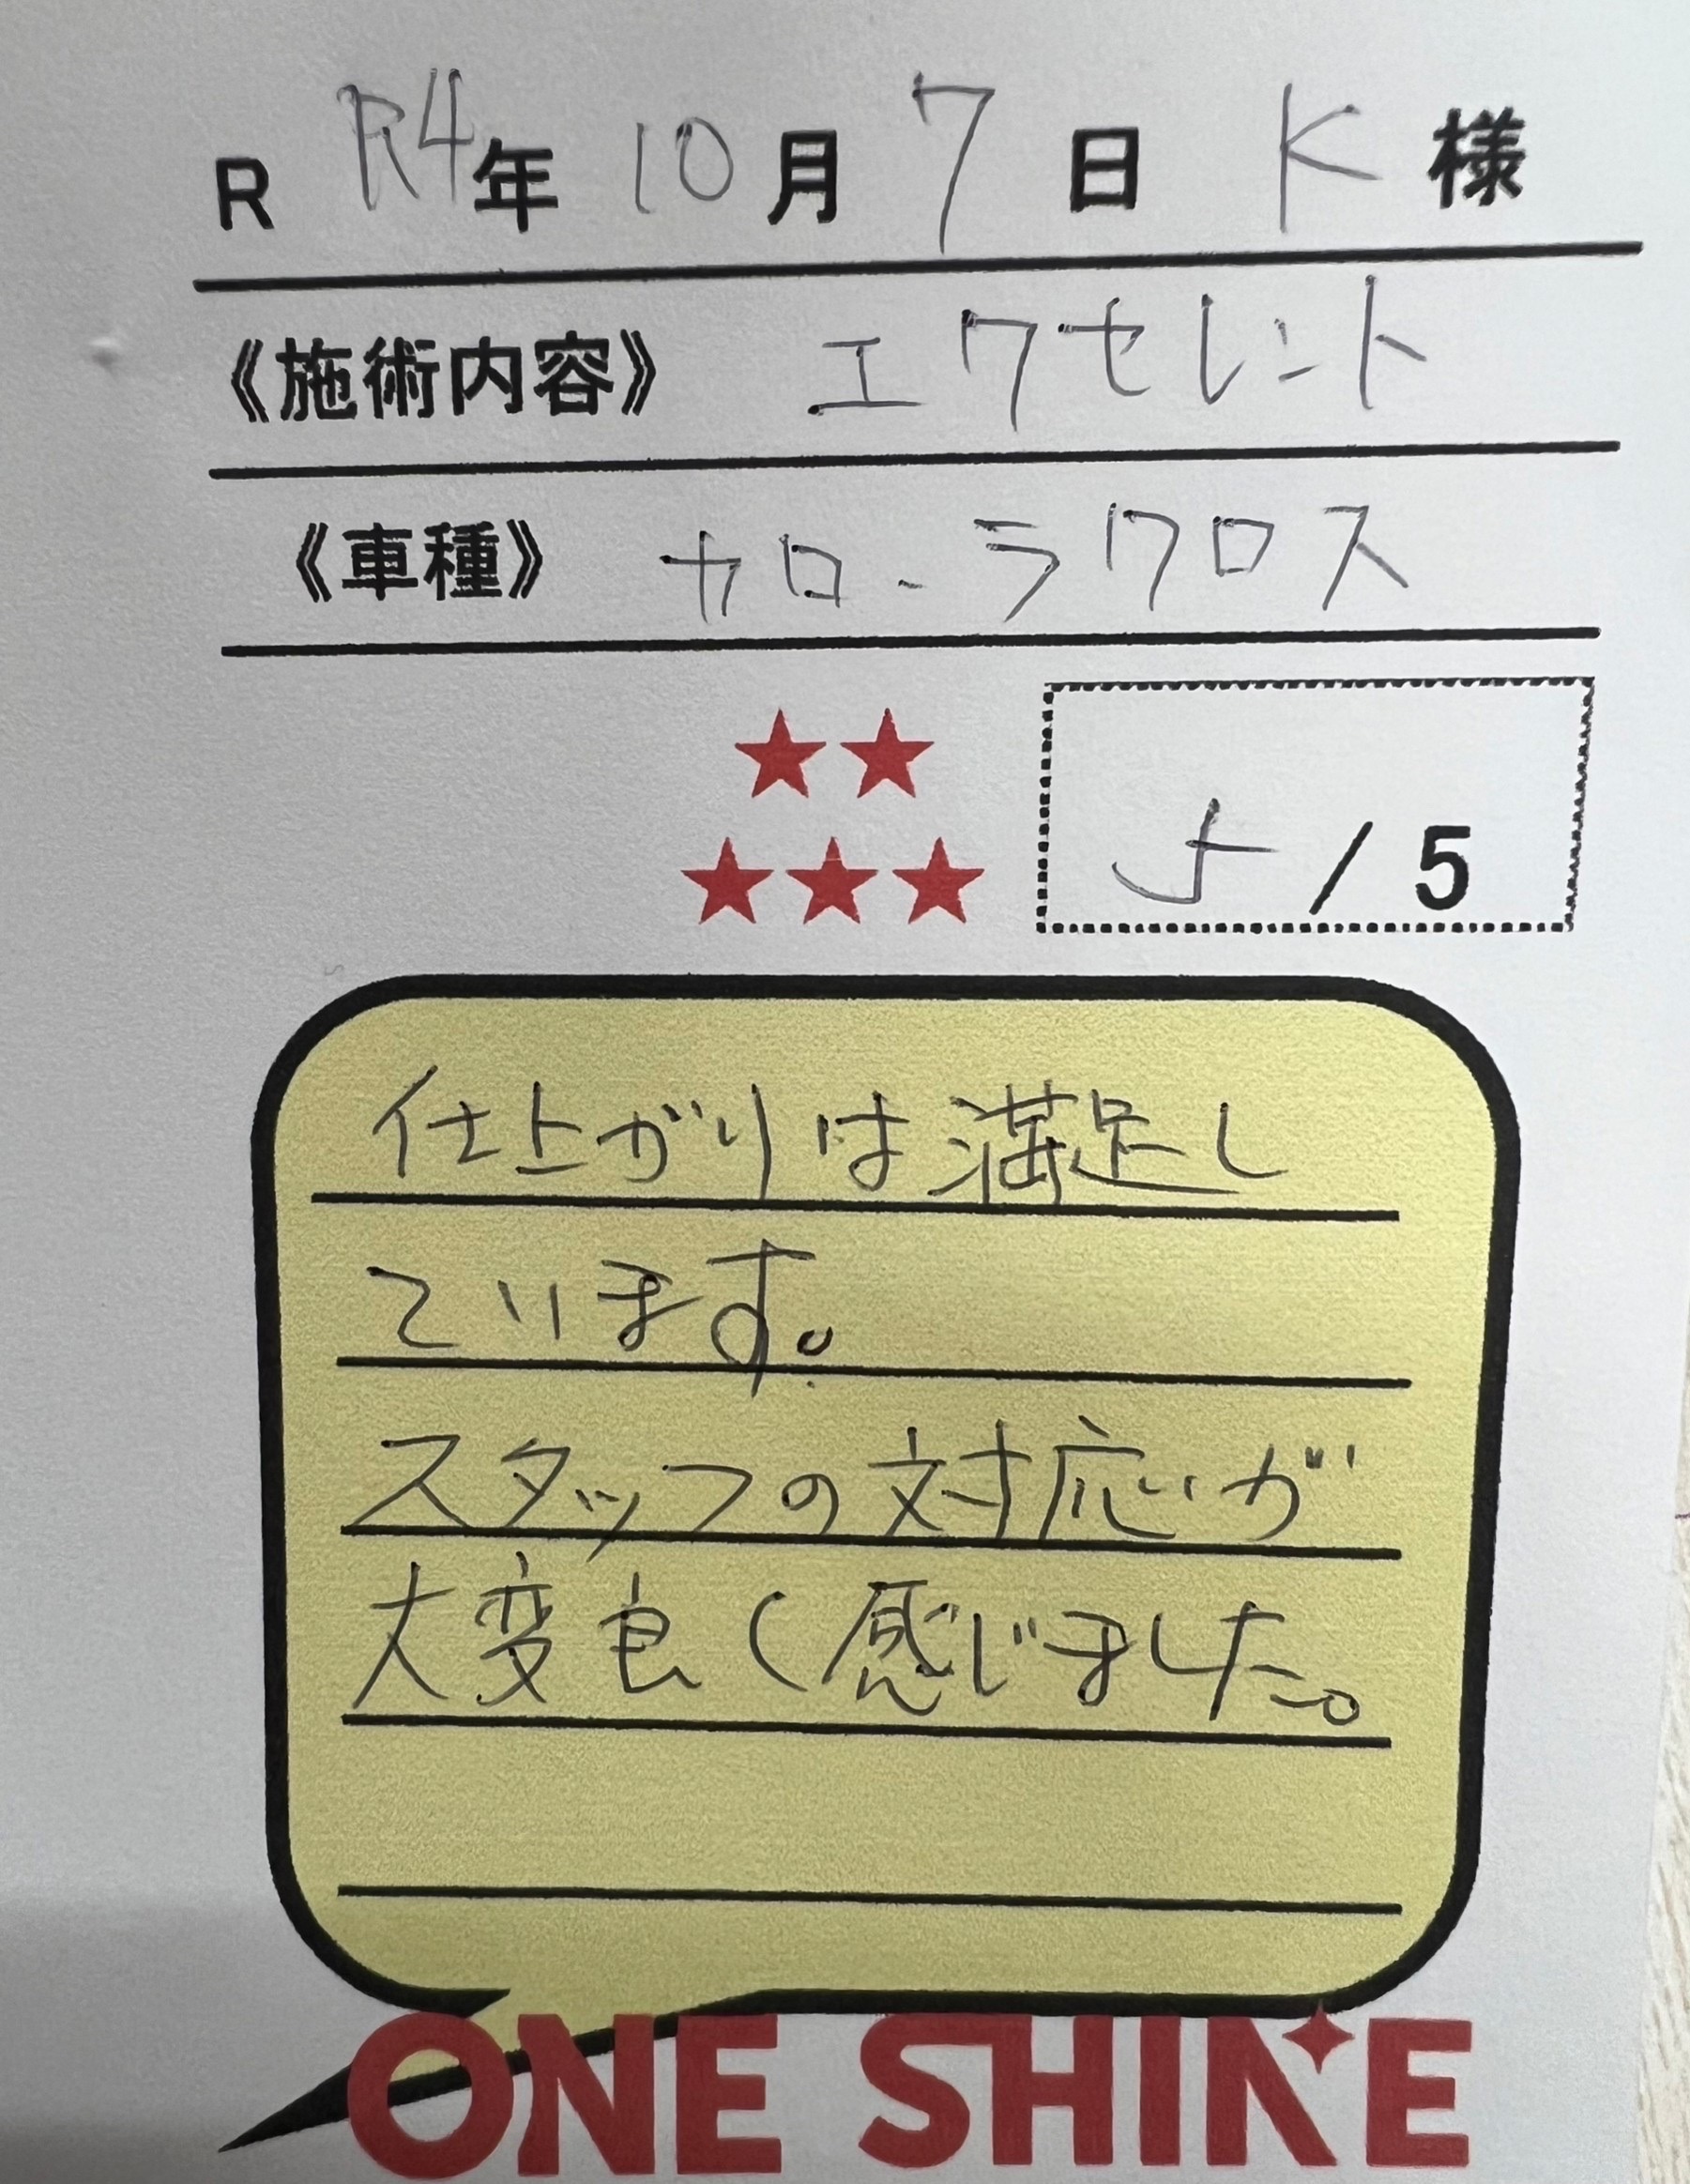 R R4年 10月 7日 K様
《施術内容》 エクセレント
《車種》 カローラクロス
★★
★★★ 5/5
仕上がりは満足し
ています。
スタッフの対応が
大変良く感じました。
ONE SHINE